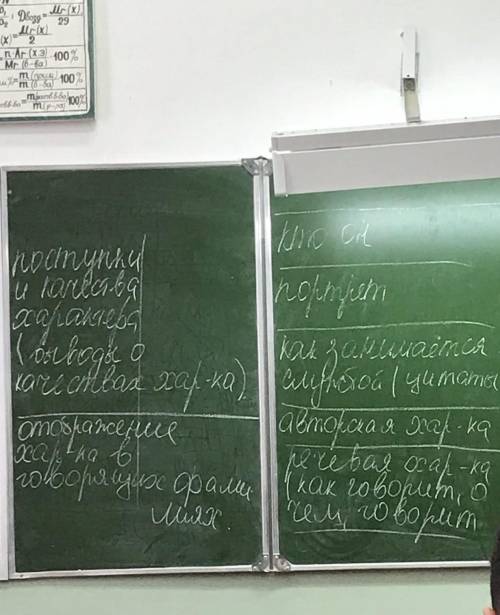 ; Dвозд = Mr(x)/29
(x) = Mr(x)/2
= n·Ar(х.э)/Mr(в-ва) 100%
= m(прим.)/m(в-ва) 100%
100%
поступки
и качества
характера
(выводы о
качествах хар-ка)
отображение
хар-ка в
говорящих фами
лиях.
кто он
портрет
как занимается
службой (цитаты
авторская хар-ка
речевая хар-ка
(как говорит, о
чем, говорит